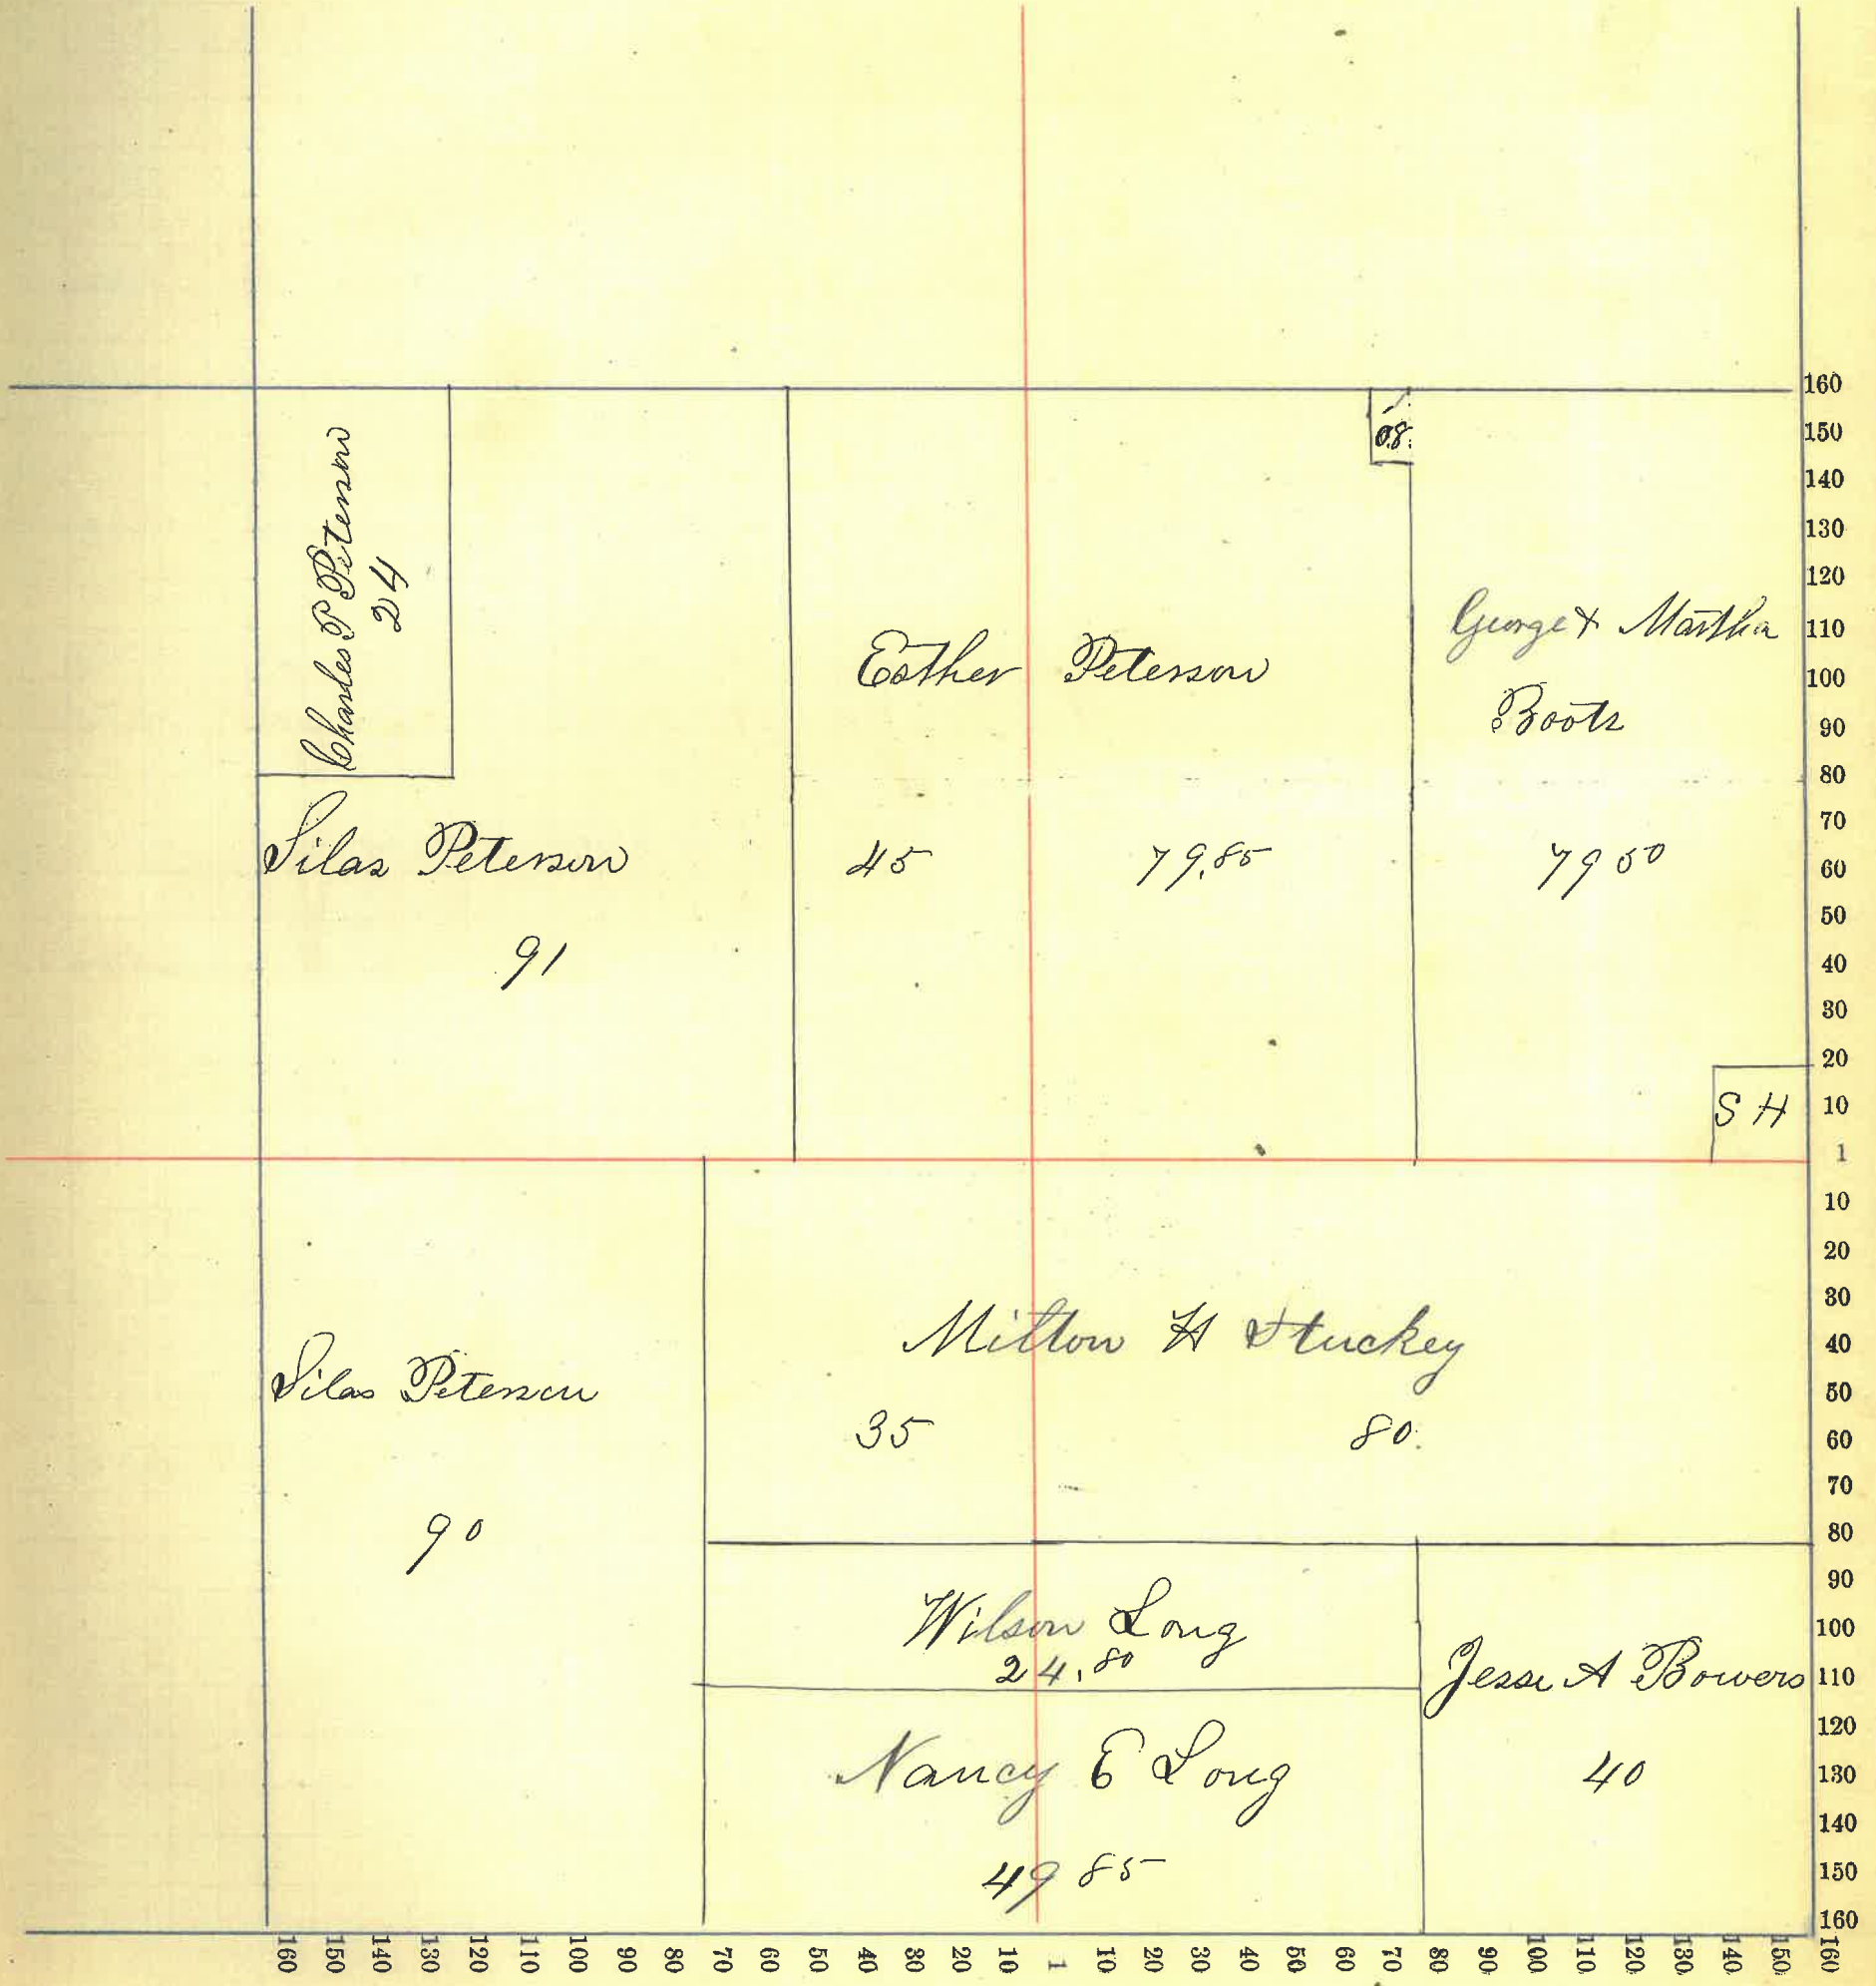 Charles P Peterson
24
08.
Esther Peterson
George & Martha
Boots
Silas Peterson
45
79.85
79 50
91
S H
Milton H Stuckey
Silas Peterson
35
80.
90
Wilson Long
24.80
Jesse A Bowers
Nancy E Long
40
49 85
160
150
140
130
120
110
100
90
80
70
60
50
40
30
20
10
1
10
20
30
40
50
60
70
80
90
100
110
120
130
140
150
160
160 150 140 130 120 110 100 90 80 70 60 50 40 30 20 10 1 10 20 30 40 50 60 70 80 90 100 110 120 130 140 150 160